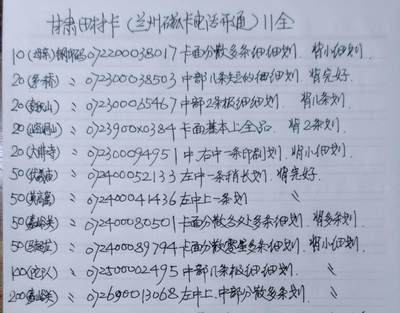 甘肃田村卡（兰州磁卡电话开通）11全
10(母亲)铜牌码072200038017卡面分散多条细细划.背小细划.
20(茅梼)〃072300038503中部几条短的细细划.背完好.
20 〃072300065467中部2条极细细划.背几条划.
20(崆峒山)〃0723900X0384卡面基本上全品.背2条划.
20(大佛寺)〃072300094951中.右中一条印刷划.背小细划.
50 〃072400052133左中一条稍长划.背完好.
50(黄高窟)〃072400041436左中上一条划 〃
50(嘉峪关)〃072400080501卡面分散各处多条细划.背多条划.
50 〃072400089794卡面分散零星多条细划.背小细划.
100(驼队)〃072500002495中部几条极细细划. 〃
200(嘉峪关)〃072690013068左中上.中部分散多条划. 〃